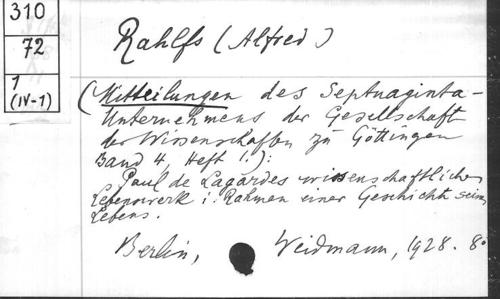 310
72
1
(IV-1)
Rahlfs (Alfred)
(Mitteilungen des Septuaginta-
Unternehmens der Gesellschaft
der Wissenschaften zu Göttingen
Band 4, Heft 1.):
Paul de Lagardes wissenschaftliches
Lebenswerk i. Rahmen einer Geschichte seines
Lebens.
Berlin, Weidmann, 1928. 8°